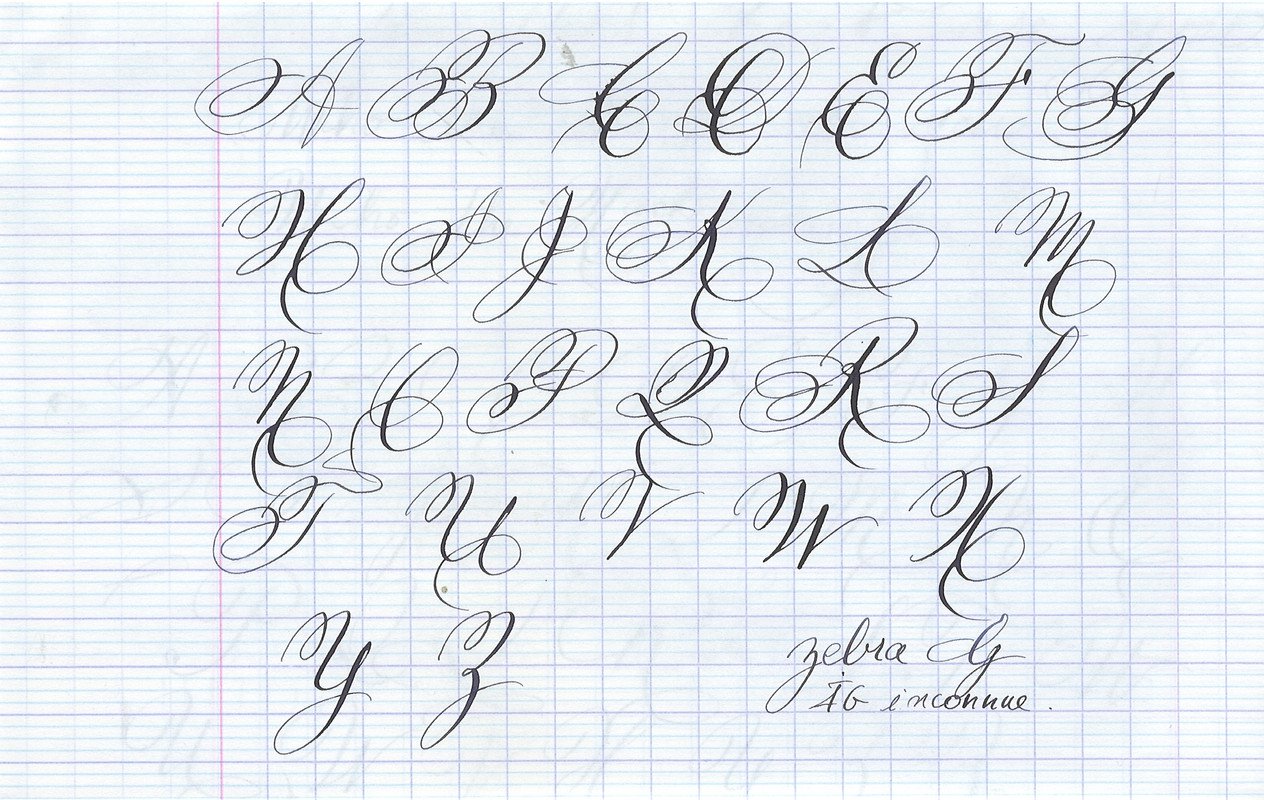 A B C D E F G
H I J K L M
N O P Q R S
T U V W X
Y Z
zebra G
IG inconnue.